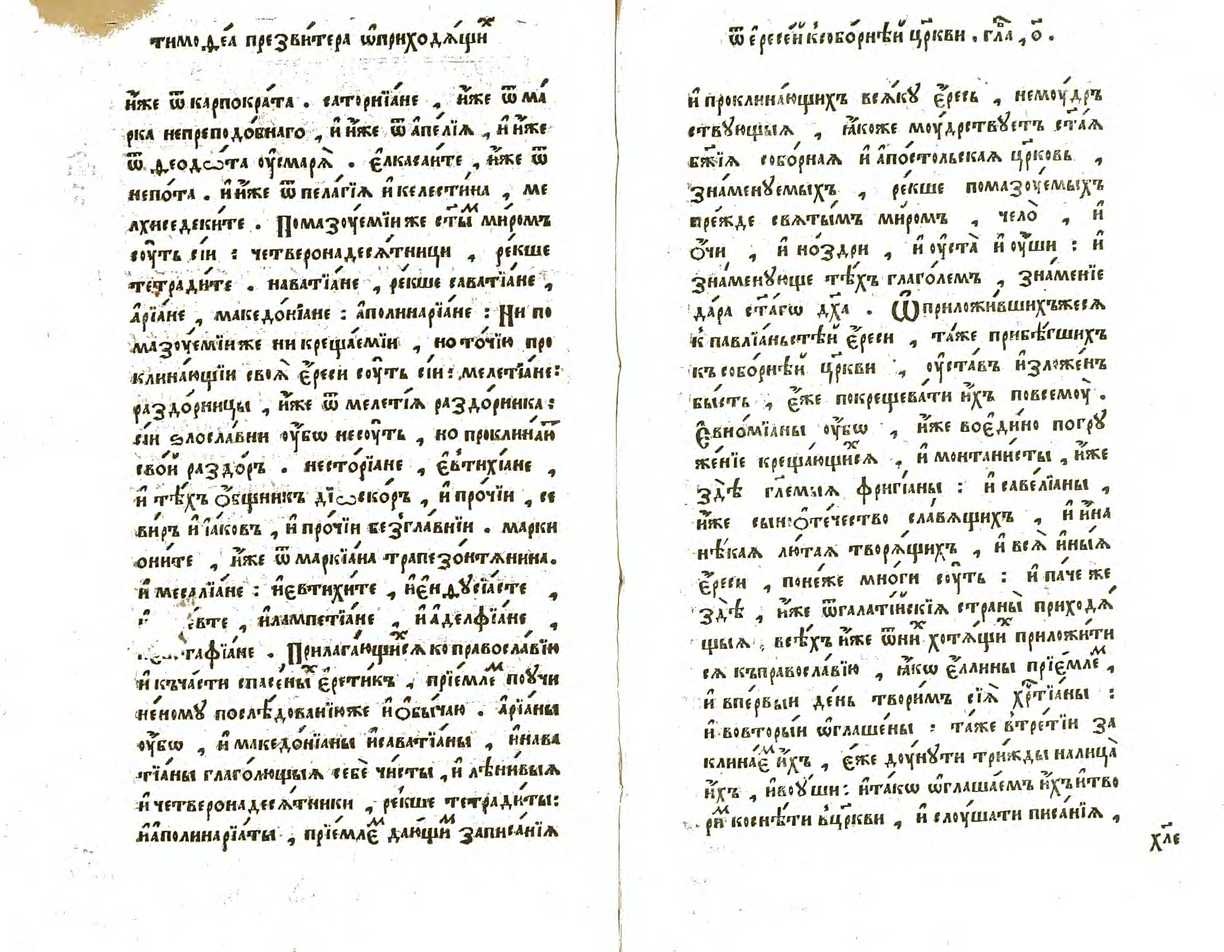 тимоѳеа презвитера ѡприходѧ́щиⷯ
и҆́же ѿ карпокра́та . саторнїа́не , и҆́же ѿ ма́
рка непреподо́бнаго , и҆ и҆́же ѿ а҆пе́лїѧ , и҆ и҆́же
ѿ ѳеодѡ́та ᲂу҆смарѧ̀ . є҆лкасаи́те , и҆́же ѿ
непо́та . и҆ и҆́же ѿ пела́гїѧ и҆ келести́на , ме
лхиседеки́те . Помазᲂу́емїи же ст҃ыⷨ ми́ромъ
сᲂу́ть сїи : четверонадесѧ́тници , ре́кше
тетради́те . нават́їане , ре́кше саватїа́не ,
а҆рїа́не , македо́нїане : а҆полинарїа́не : Ни по
мазᲂу́емїи же ни креща́емїи , но то́чїю про
клина́ющїи своѧ̀ є҆́реси сᲂу́ть сїи : мелетїа́не :
раздо́рницы , и҆́же ѿ меле́тїѧ раздо́рника :
сїи ѕлосла́вни ᲂу҆́бѡ несᲂу́ть , но проклина́й
сво́й раздо́ръ . несто́рїане , є҆ѵтихїа́не ,
и҆ тѣ́хъ ѻ҆́бщникъ дїѻ́скоръ , и҆ про́чїи , се
ви́ръ и҆ і҆а́ковъ , и҆ про́чїи безгла́внїи . марки
они́те , и҆́же ѿ маркїа́на трапезо́нтѧнина .
и҆ месалїа́не : и҆ є҆ѵтихи́те , и҆ є҆нѳусїа́сте ,
и҆ лампетїа́не , и҆ а҆делфїа́не ,
Прилага́ющиⷯсѧ ко правосла́вїю
и҆ къ ча́сти спасе́ныⷯ є҆рети́къ , прїе́млеⷨ по ᲂу҆чи
не́ному послѣ́дованїю же и҆ ѻ҆бы́чаю . а҆рїа́ны
ᲂу҆́бѡ , и҆ македо́нїаны и҆ саватїа́ны , и҆ нава
тїа́ны глаго́лющыѧ себѐ чи́сты , и҆ лѣ́нивыѧ
и҆ четверонадесѧ́тники , ре́кше тетради́ты :
и҆ а҆полинарїа́ты , прїе́млеⷨ даю́щиⷨ записа́нїѧ
ѿ є҆ресе́й к собо́рнѣй цр҃кви . гла҃ , о҃ .
и҆ проклина́ющихъ всѧ́ку є҆́ресь , немᲂу́др
ствующыѧ , ꙗ҆́коже мᲂу́дрствуетъ ст҃а́ѧ
бж҃їѧ собо́рнаѧ и҆ а҆по́стольскаѧ цр҃ковь ,
зна́менуемыхъ , ре́кше помазᲂу́емыхъ
пре́жде свѧты́мъ ми́ромъ , чело̀ , и҆
ѻ҆́чи , и҆ но́здри , и҆ ᲂу҆ста̀ и҆ ᲂу҆́ши : и҆
зна́менующе тѣ́хъ глаго́лемъ , зна́менїе
да́ра ст҃а́гѡ дх҃а . Ѿприложи́вшихъжесѧ
к павлїа́ньстѣй є҆́реси , та́же прибѣ́гшихъ
къ собо́рнѣй цр҃кви , ᲂу҆ста́въ и҆зложе́нъ
бы́сть , є҆́же покрещева́ти и҆́хъ повсемᲂу̀ .
Є҆вно́мїаны ᲂу҆́бѡ , и҆́же воє҆ди́но погру
же́нїе креща́ющиⷯсѧ , и҆ монтани́сты , и҆́же
здѣ̀ гл҃емыѧ фригїа́ны : и҆ савелїа́ны ,
и҆́же сыноѻте́чество сла́вѧщихъ , и҆ и҆́на
нѣ́каѧ лю́таѧ творѧ́щихъ , и҆ всѧ̀ и҆ны́ѧ
є҆́реси , поне́же мно́ги сᲂу́ть : и҆ па́че же
здѣ̀ , и҆́же ѿгалаті́йскїѧ страны̀ приходѧ́
щыѧ , всѣ́хъ и҆́же ѿниⷯ хотѧ́щиⷯ приложи́ти
сѧ къ правосла́вїю , ꙗ҆́кѡ є҆́ллины прїе́млеⷨ ,
и҆ впе́рвыи де́нь твори́мъ сїѧ̀ хрⷭ҇тїа́ны :
и҆ вовторы́и ѡ҆глаше́ны : та́же втре́тїи за
клина́еⷨ и҆́хъ , є҆́же дᲂу́нути три́жды налица̀
и҆́хъ , и҆ воу́ши : и҆ та́кѡ ѡ҆глаша́емъ и҆́хъ и҆ тво
риⷨ косне́ти в цр҃кви , и҆ слᲂу́шати писа́нїѧ ,
хл҃е